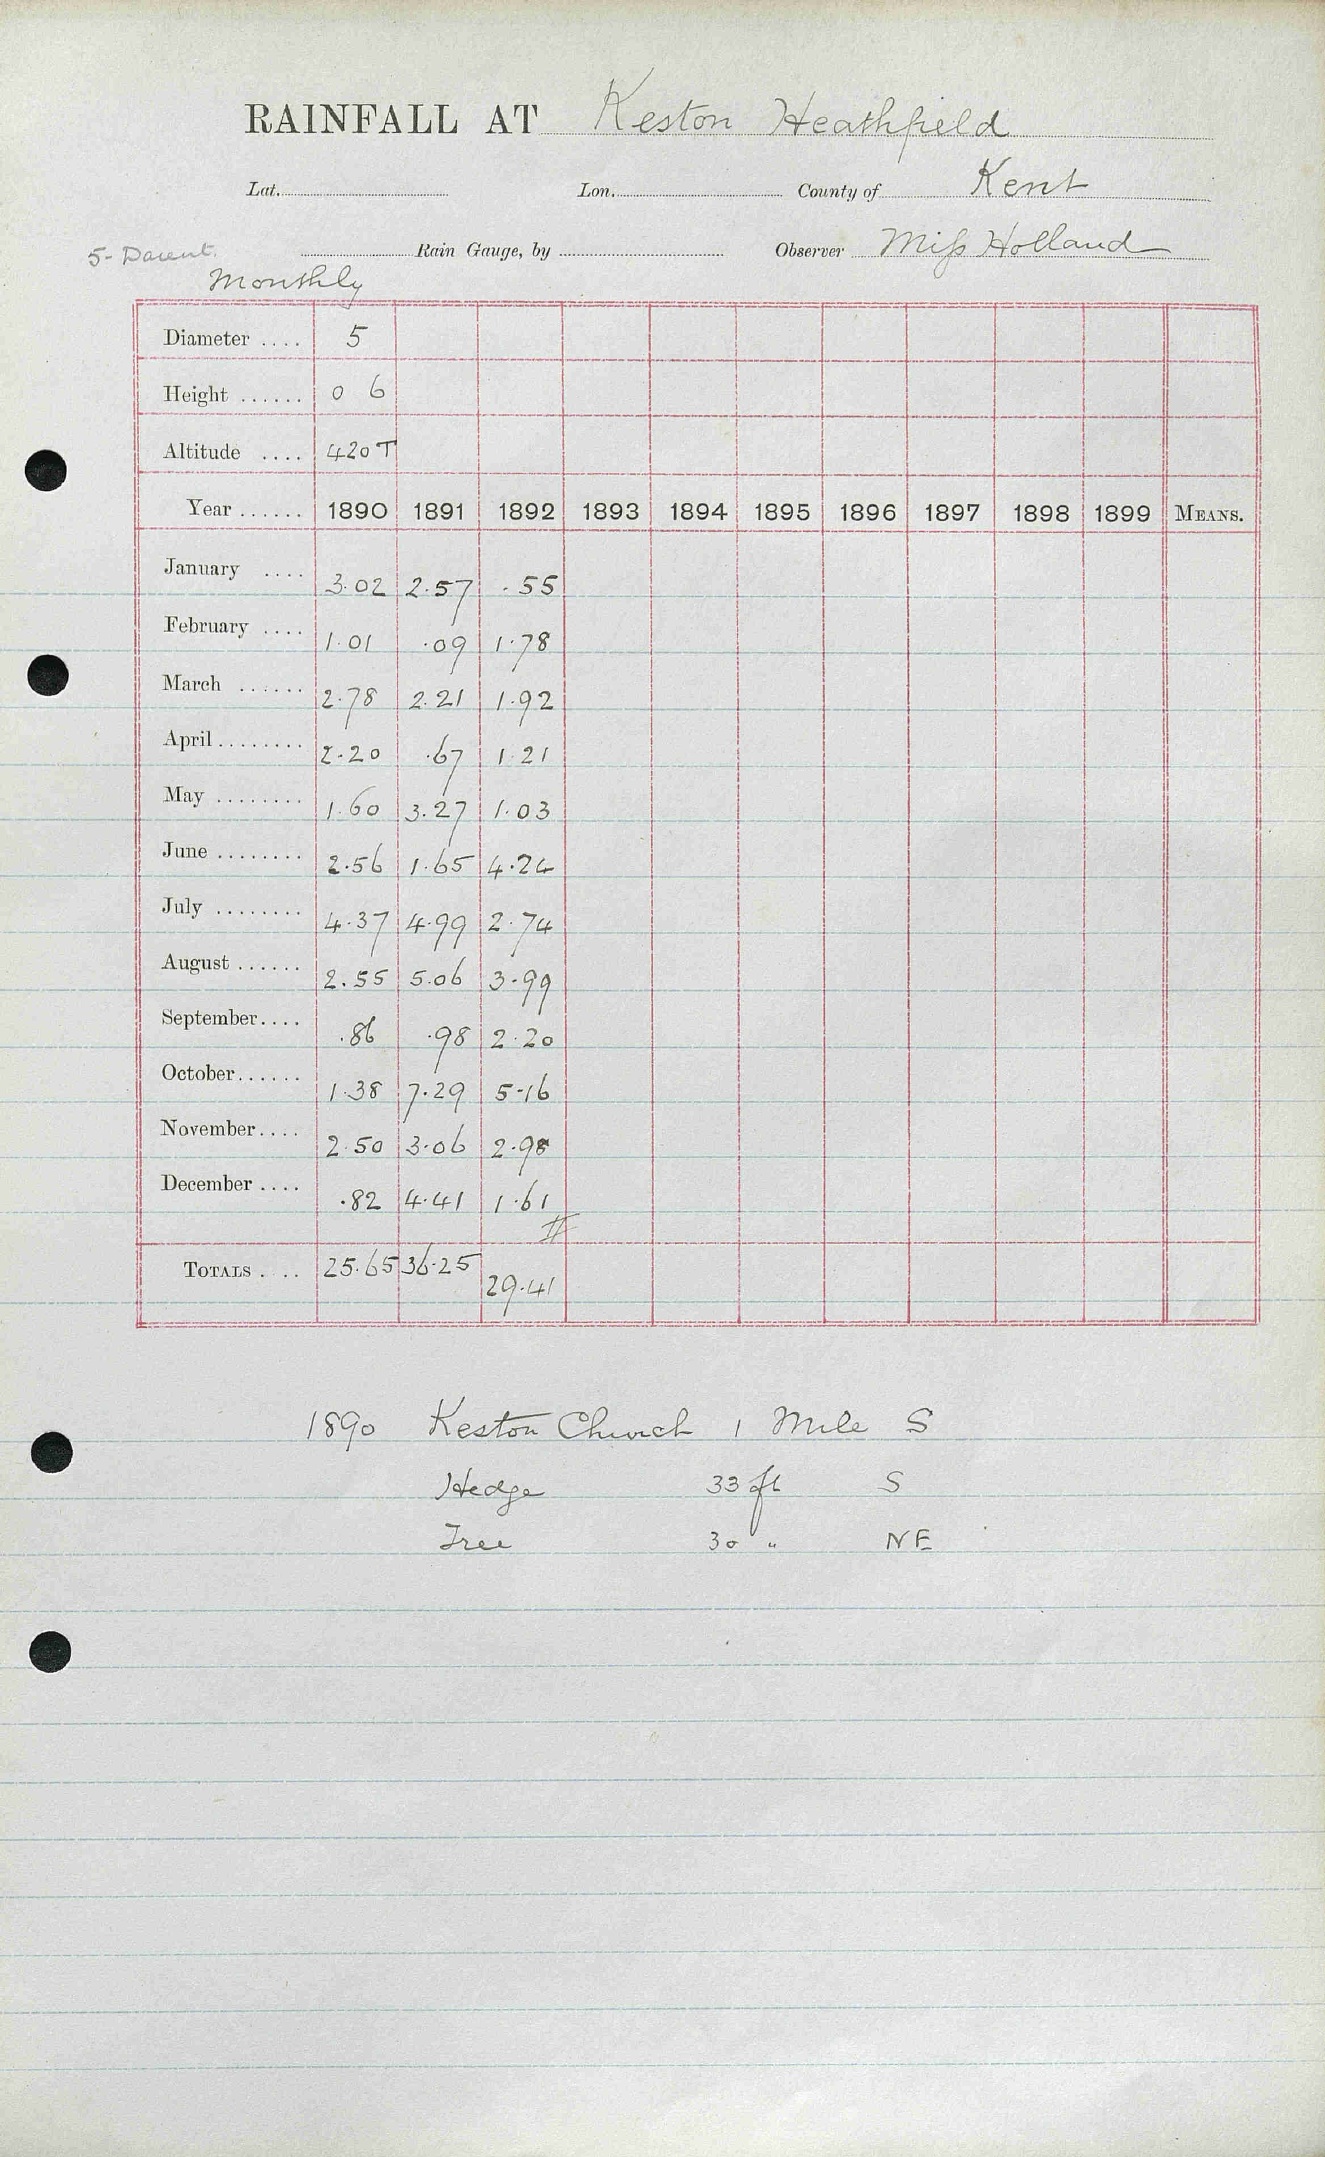 RAINFALL AT Keston Heathfield
Lat. Lon. County of Kent
5- Darent. Rain Gauge, by Observer Miss Holland
Monthly
Diameter .... 5
Height ...... 0 6
Altitude .... 420 T
Year ...... 1890 1891 1892 1893 1894 1895 1896 1897 1898 1899 MEANS.
January .... 3.02 2.57 .55
February .... 1.01 .09 1.78
March ...... 2.78 2.21 1.92
April ........ 2.20 .67 1.21
May ........ 1.60 3.27 1.03
June ........ 2.56 1.65 4.24
July ........ 4.37 4.99 2.74
August ...... 2.55 5.06 3.99
September .... .86 .98 2.20
October ...... 1.38 7.29 5.16
November .... 2.50 3.06 2.98
December .... .82 4.41 1.61
TOTALS .... 25.65 36.25 29.41
1890 Keston Church 1 Mile S
Hedge 33 ft S
Tree 30 " NE